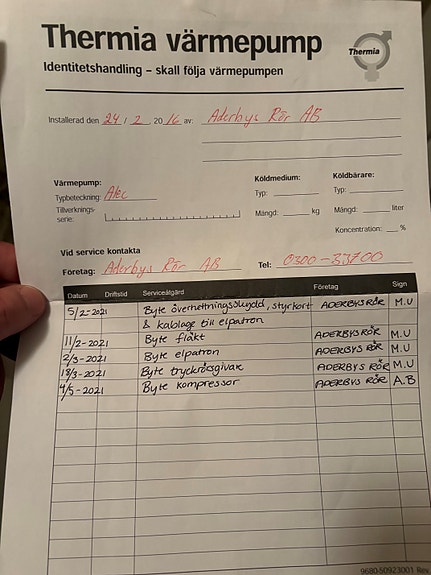 Thermia värmepump
Thermia
Identitetshandling – skall följa värmepumpen
Installerad den 24 / 2 20 16 av: Aderbys Rör AB
Värmepump:
Typbeteckning: Atec
Tillverknings-
serie:
Köldmedium:
Typ:
Mängd: kg
Köldbärare:
Typ:
Mängd: liter
Koncentration: %
Vid service kontakta
Företag: Aderbys Rör AB Tel: 0300-33700
Datum Driftstid Serviceåtgärd Företag Sign
5/2-2021 Byte överhettningsskydd, styrkort ADERBYS RÖR M.U
& kablage till elpatron
11/2-2021 Byte fläkt ADERBYS RÖR M.U
2/3-2021 Byte elpatron ADERBYS RÖR M.U
18/3-2021 Byte tryckrörsgivak ADERBYS RÖR M.U
4/5-2021 Byte kompressor ADERBYS RÖR A.B
9680-50923001 Rev.